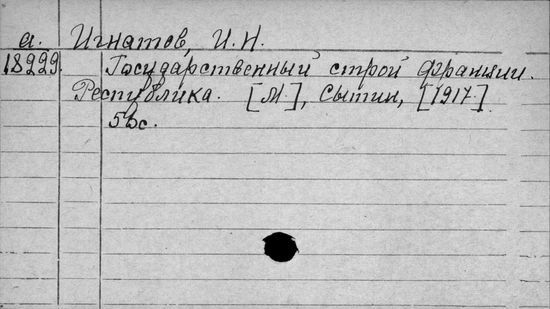 а. Игнатов, И.Н.
18229. Государственный строй Франции.
Республика. [М], Сытин, [1917].
56с.